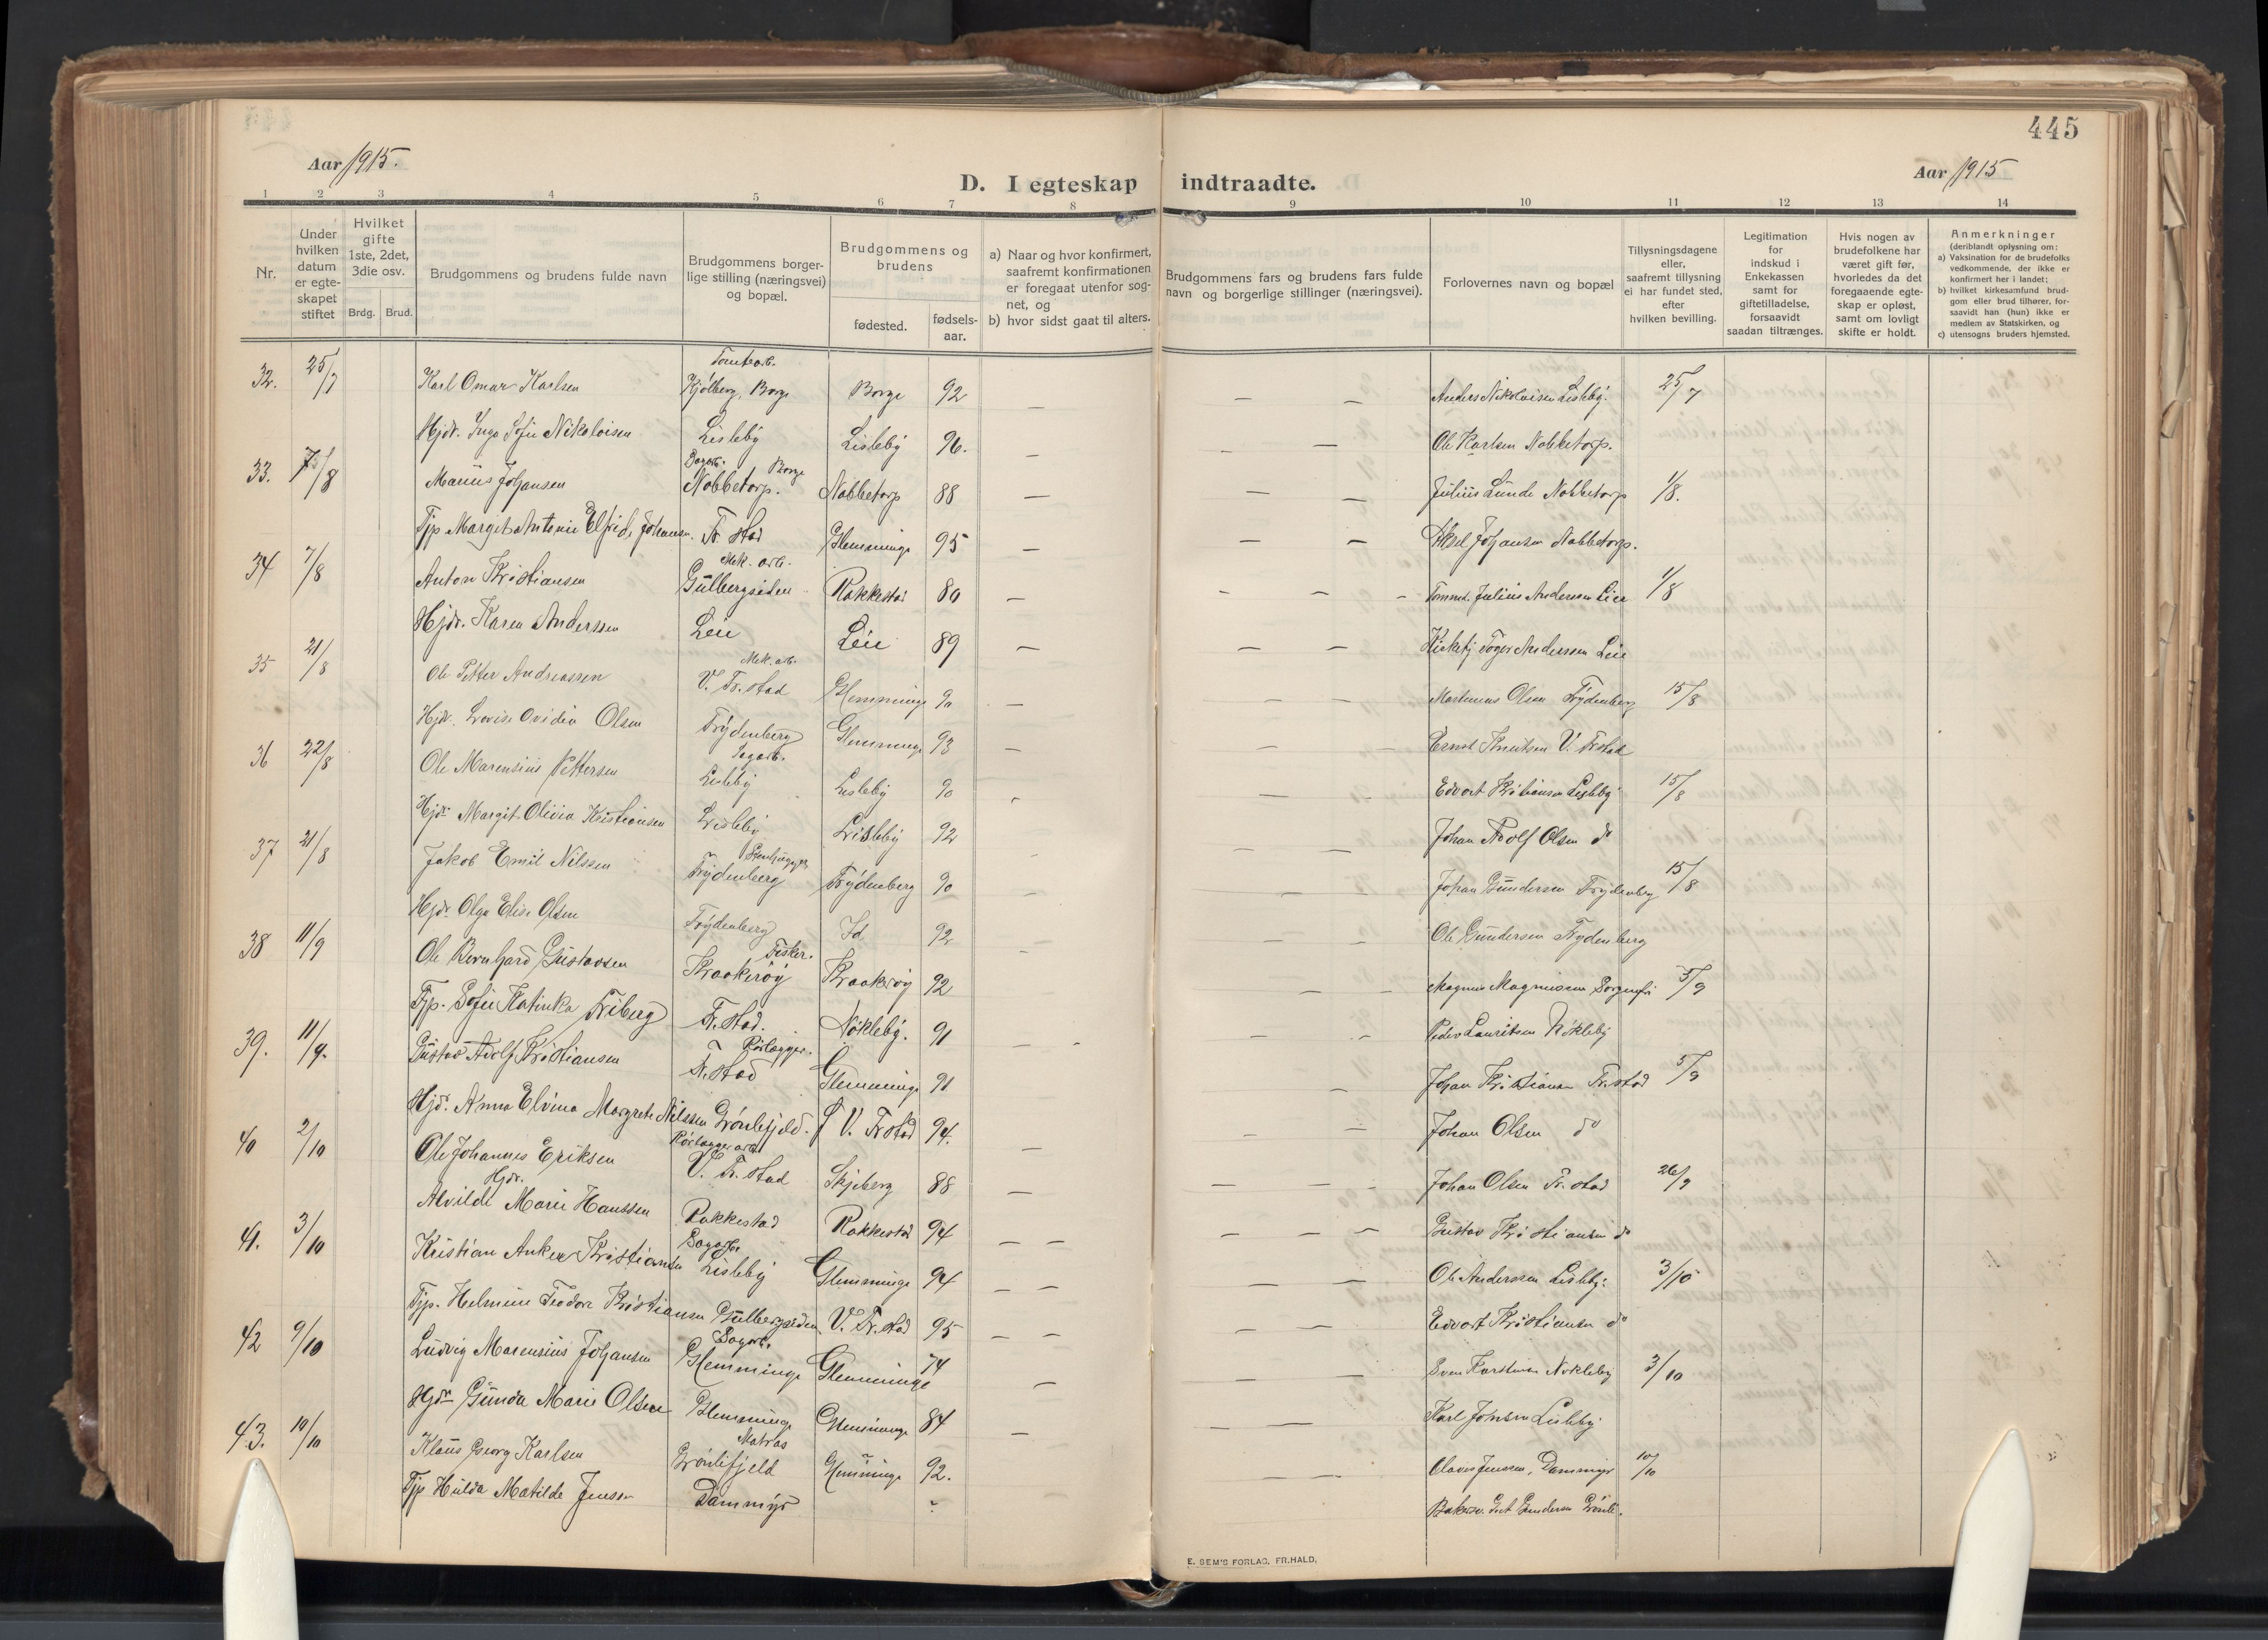 445
Aar 1915.
D. I egteskap indtraadte.
Aar 1915
1 2 3 4 5 6 7 8 9 10 11 12 13 14
Nr.
Under hvilken datum er egte-skapet stiftet
Hvilket gifte 1ste, 2det, 3die osv.
Brdg. Brud.
Brudgommens og brudens fulde navn
Brudgommens borger-lige stilling (næringsvei) og bopæl.
Brudgommens og brudens
fødested. fødsels-aar.
a) Naar og hvor konfirmert, saafremt konfirmationen er foregaat utenfor sog-net, og
b) hvor sidst gaat til alters.
Brudgommens fars og brudens fars fulde navn og borgerlige stillinger (næringsvei).
Forlovernes navn og bopæl
Tillysningsdagene eller, saafremt tillysning ei har fundet sted, efter hvilken bevilling.
Legitimation for indskud i Enkekassen samt for giftetilladelse, forsaavidt saadan tiltrænges.
Hvis nogen av brudefolkene har været gift før, hvorledes da det foregaaende egte-skap er opløst, samt om lovligt skifte er holdt.
Anmerkninger
(deriblandt oplysning om:
a) Vaksination for de brudefolks vedkommende, der ikke er konfirmert her i landet;
b) hvilket kirkesamfund brud-gom eller brud tilhører, for-saavidt han (hun) ikke er medlem av Statskirken, og
c) utensogns bruders hjemsted.
Tomtearb.
32. 25/7 Karl Omar Karlsen Kjölberg, Borge Borge 92 — — — Anders Nikolaisen Lisleby. 25/7
Hjdr. Inga Sofie Nikolaisen Lisleby Lisleby 96. — — — Ole Karlsen Nabbetorp.
Sagarb. Borge
33. 7/8 Marius Johansen Nabbetorp. Nabbetorp 88 — — — Julius Lunde Nabbetorp 1/8.
Tjp Margit Antonie Elfride Johansen. Fr. stad Glemminge 95 — — — Aksel Johansen Nabbetorp.
Mek. arb.
34 7/8 Anton Kristiansen Gulbergsiden Rakkestad 80 — - — – Tømmr. Julius Andersen Leie 1/8
Hjdr. Karen Anderssen Leie Leie 89 — — — Kirketj Toger Anderssen Leie
Mek. arb.
35 21/8 Ole Petter Andreassen V. Fr. stad Glemminge 90 — — — Martinus Olsen Frydenberg 15/8
Hjdr. Lovise Ovidia Olsen Frydenberg Glemminge 93 — — - Ernst Knutsen V. Frstad
Sagarb.
36 22/8 Ole Marensius Pettersen Lisleby Lisleby 90 - — - Edvart Kristiansen Lisleby 15/8
Hjdr Margit Olivia Kristiansen Lisleby Lisleby 92 — — Johan Adolf Olsen do
Stenhugger
37 21/8 Jakob Emil Nilssen Frydenberg Frydenberg 90 — — — Johan Gundersen Frydenberg 15/8
Hjdr Olga Elise Olsen Frydenberg Id 92 — — — Ole Gundersen Frydenberg
Fisker.
38 11/9 Ole Bernhard Gustavsen Kraakeröy Kraakeröy 92 — — Magnus Magnussen Sorgenfri 5/9
Tjp. Sofie Katinka Friberg Fr. stad. Nökleby. 91 — - — – Peder Lauritsen Nökleby
Rörlægger.
39. 11/9. Gustav Adolf Kristiansen Fr. stad Glemminge 91 — Johan Kristiansen Fr.stad 5/9
Hjdr. Anna Elvina Margrete Nilssen Grönlifjeld. V. Frstad 94. — — — Johan Olsen do
Rörlægger arb.
40 2/10 Ole Johannes Eriksen V. Fr. stad Skjeberg 88 — — — — Johan Olsen Fr. stad 26/9
Hjdr.
Alvilde Marie Hanssen Rakkestad Rakkestad 94 — — — — — Gustav Kristiansen do
Sagarb.
41. 3/10 Kristian Anker Kristiansen Lisleby Glemminge 94 — — — — Ole Anderssen Lisleby. 3/10
Tjp. Helmine Teodora Kristiansen Gulbergsiden V. Fr. stad 95 — — — — Edvart Kristiansen do
Sagarb.
42 9/10 Ludvig Marensius Johansen Glemminge Glemminge 74 — — — Sven Karstensen Nökleby 3/10
Hjdr Gunda Marie Olsen Glemminge Glemminge 84 — — — Karl Johnsen Lisleby.
Matros
43. 10/10 Klaus Georg Karlsen Grönlifjeld Glemminge 92. — — Olaves Jenssen, Dammyr 10/10
Tjp Hulda Matilde Jensen Dammyr Gundersen
E. SEM'S FORLAG, FR.HALD.